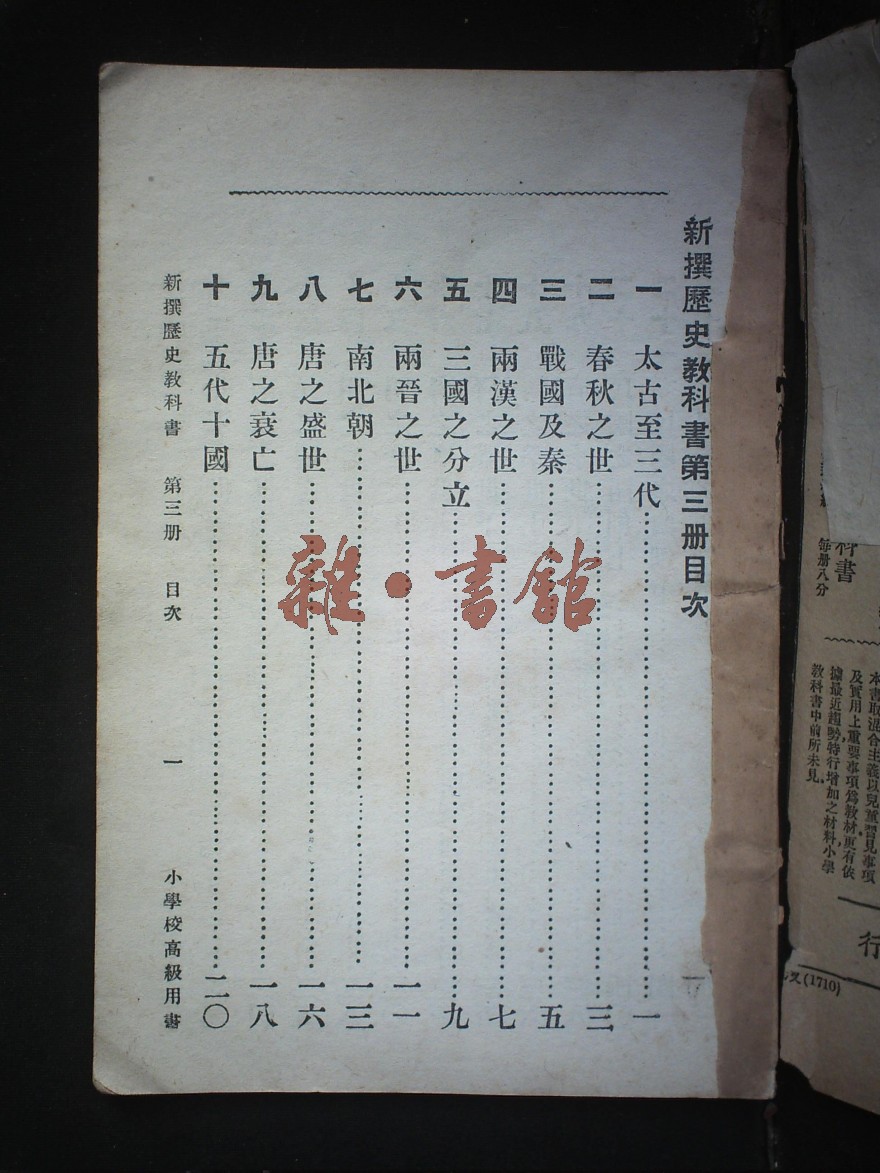 新撰歷史教科書第三册目次
一 太古至三代 一
二 春秋之世 三
三 戰國及秦 五
四 兩漢之世 七
五 三國之分立 九
六 兩晉之世 一一
七 南北朝 一三
八 唐之盛世 一六
九 唐之衰亡 一八
十 五代十國 二〇
新撰歷史教科書 第三册 目次 一 小學校高級用書
雜·書館
科書
每册八分
本書取混合主義以兒童習見事項
及實用上重要事項爲教材更有依
據最近趨勢特行增加之材料小學
教科書中前所未見
行
(1710)